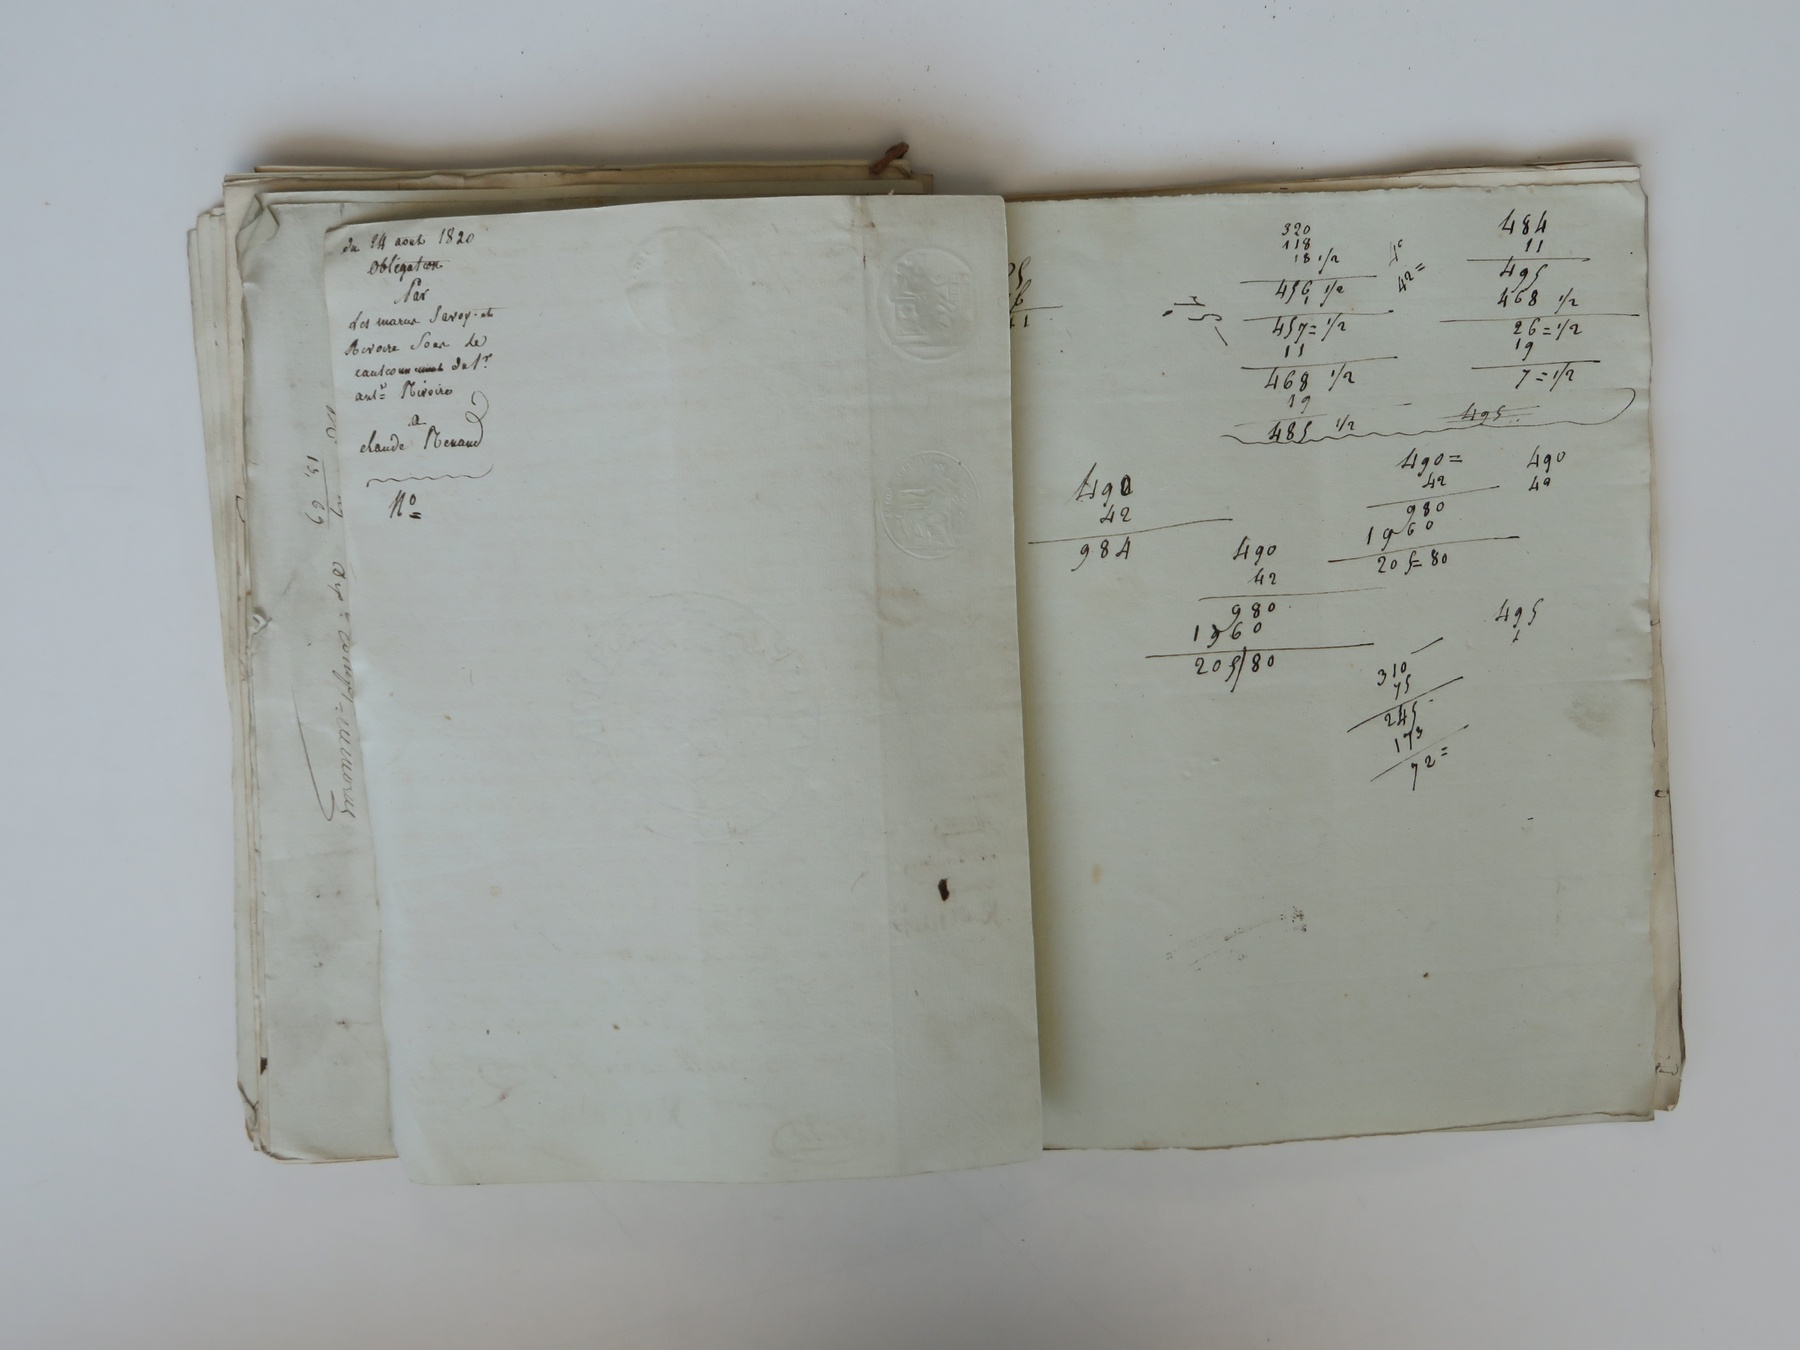 du 24 aout 1820
obligation
Par
Les maries Savoy et
Rivoire Sous le
cautionnement du Sr
ant.e Rivoire
a
claude Renaud
No
320
118
18 1/2
456 1/2
1
457=1/2
11
468 1/2
19
485 1/2
42=
484
11
495
468 1/2
26=1/2
19
7=1/2
495
490
42
984
490
42
980
1960
205/80
490=
42
980
1960
205=80
490
42
495
310
75
245
173
72=